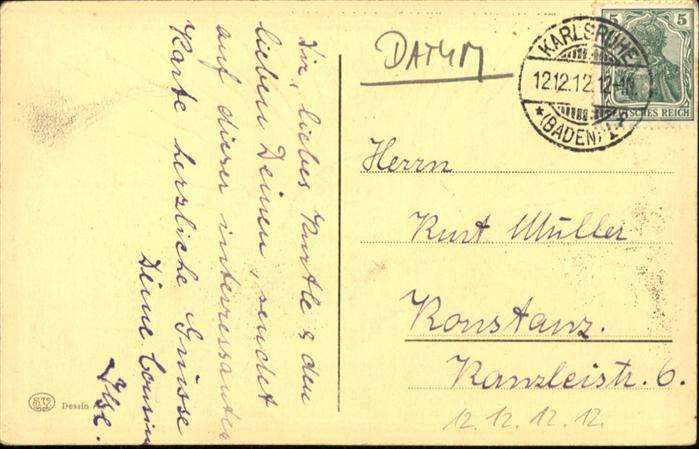 Dir, liebes Kurtle & den
lieben Deinen, sendet
auf dieser interessanten
Karte herzliche Grüsse
Deine Cousine
Ilse.
DATUM
KARLSRUHE
12.12.12.12-1N.
* (BADEN) 1 *
5 5
DEUTSCHES REICH
Herrn
Kurt Müller
Konstanz.
Kanzleistr. 6.
12. 12. 12. 12.
Dessin